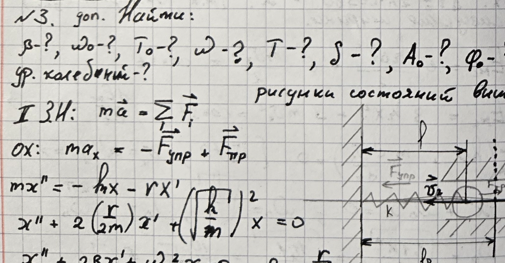 №3. доп. Найти:
β-?, ω₀-?, T₀-?, ω-?, T-?, δ-?, A₀-?, φ₀-?
ур. колебаний-?
рисунки состояний
II ЗН: ma⃗ = ΣF⃗ᵢ
ох: maₓ = -F⃗упр + F⃗тр
mx'' = -kx - rx'
x'' + 2(r/2m)x' + (√k/m)²x = 0
l
F⃗упр
K
l₀